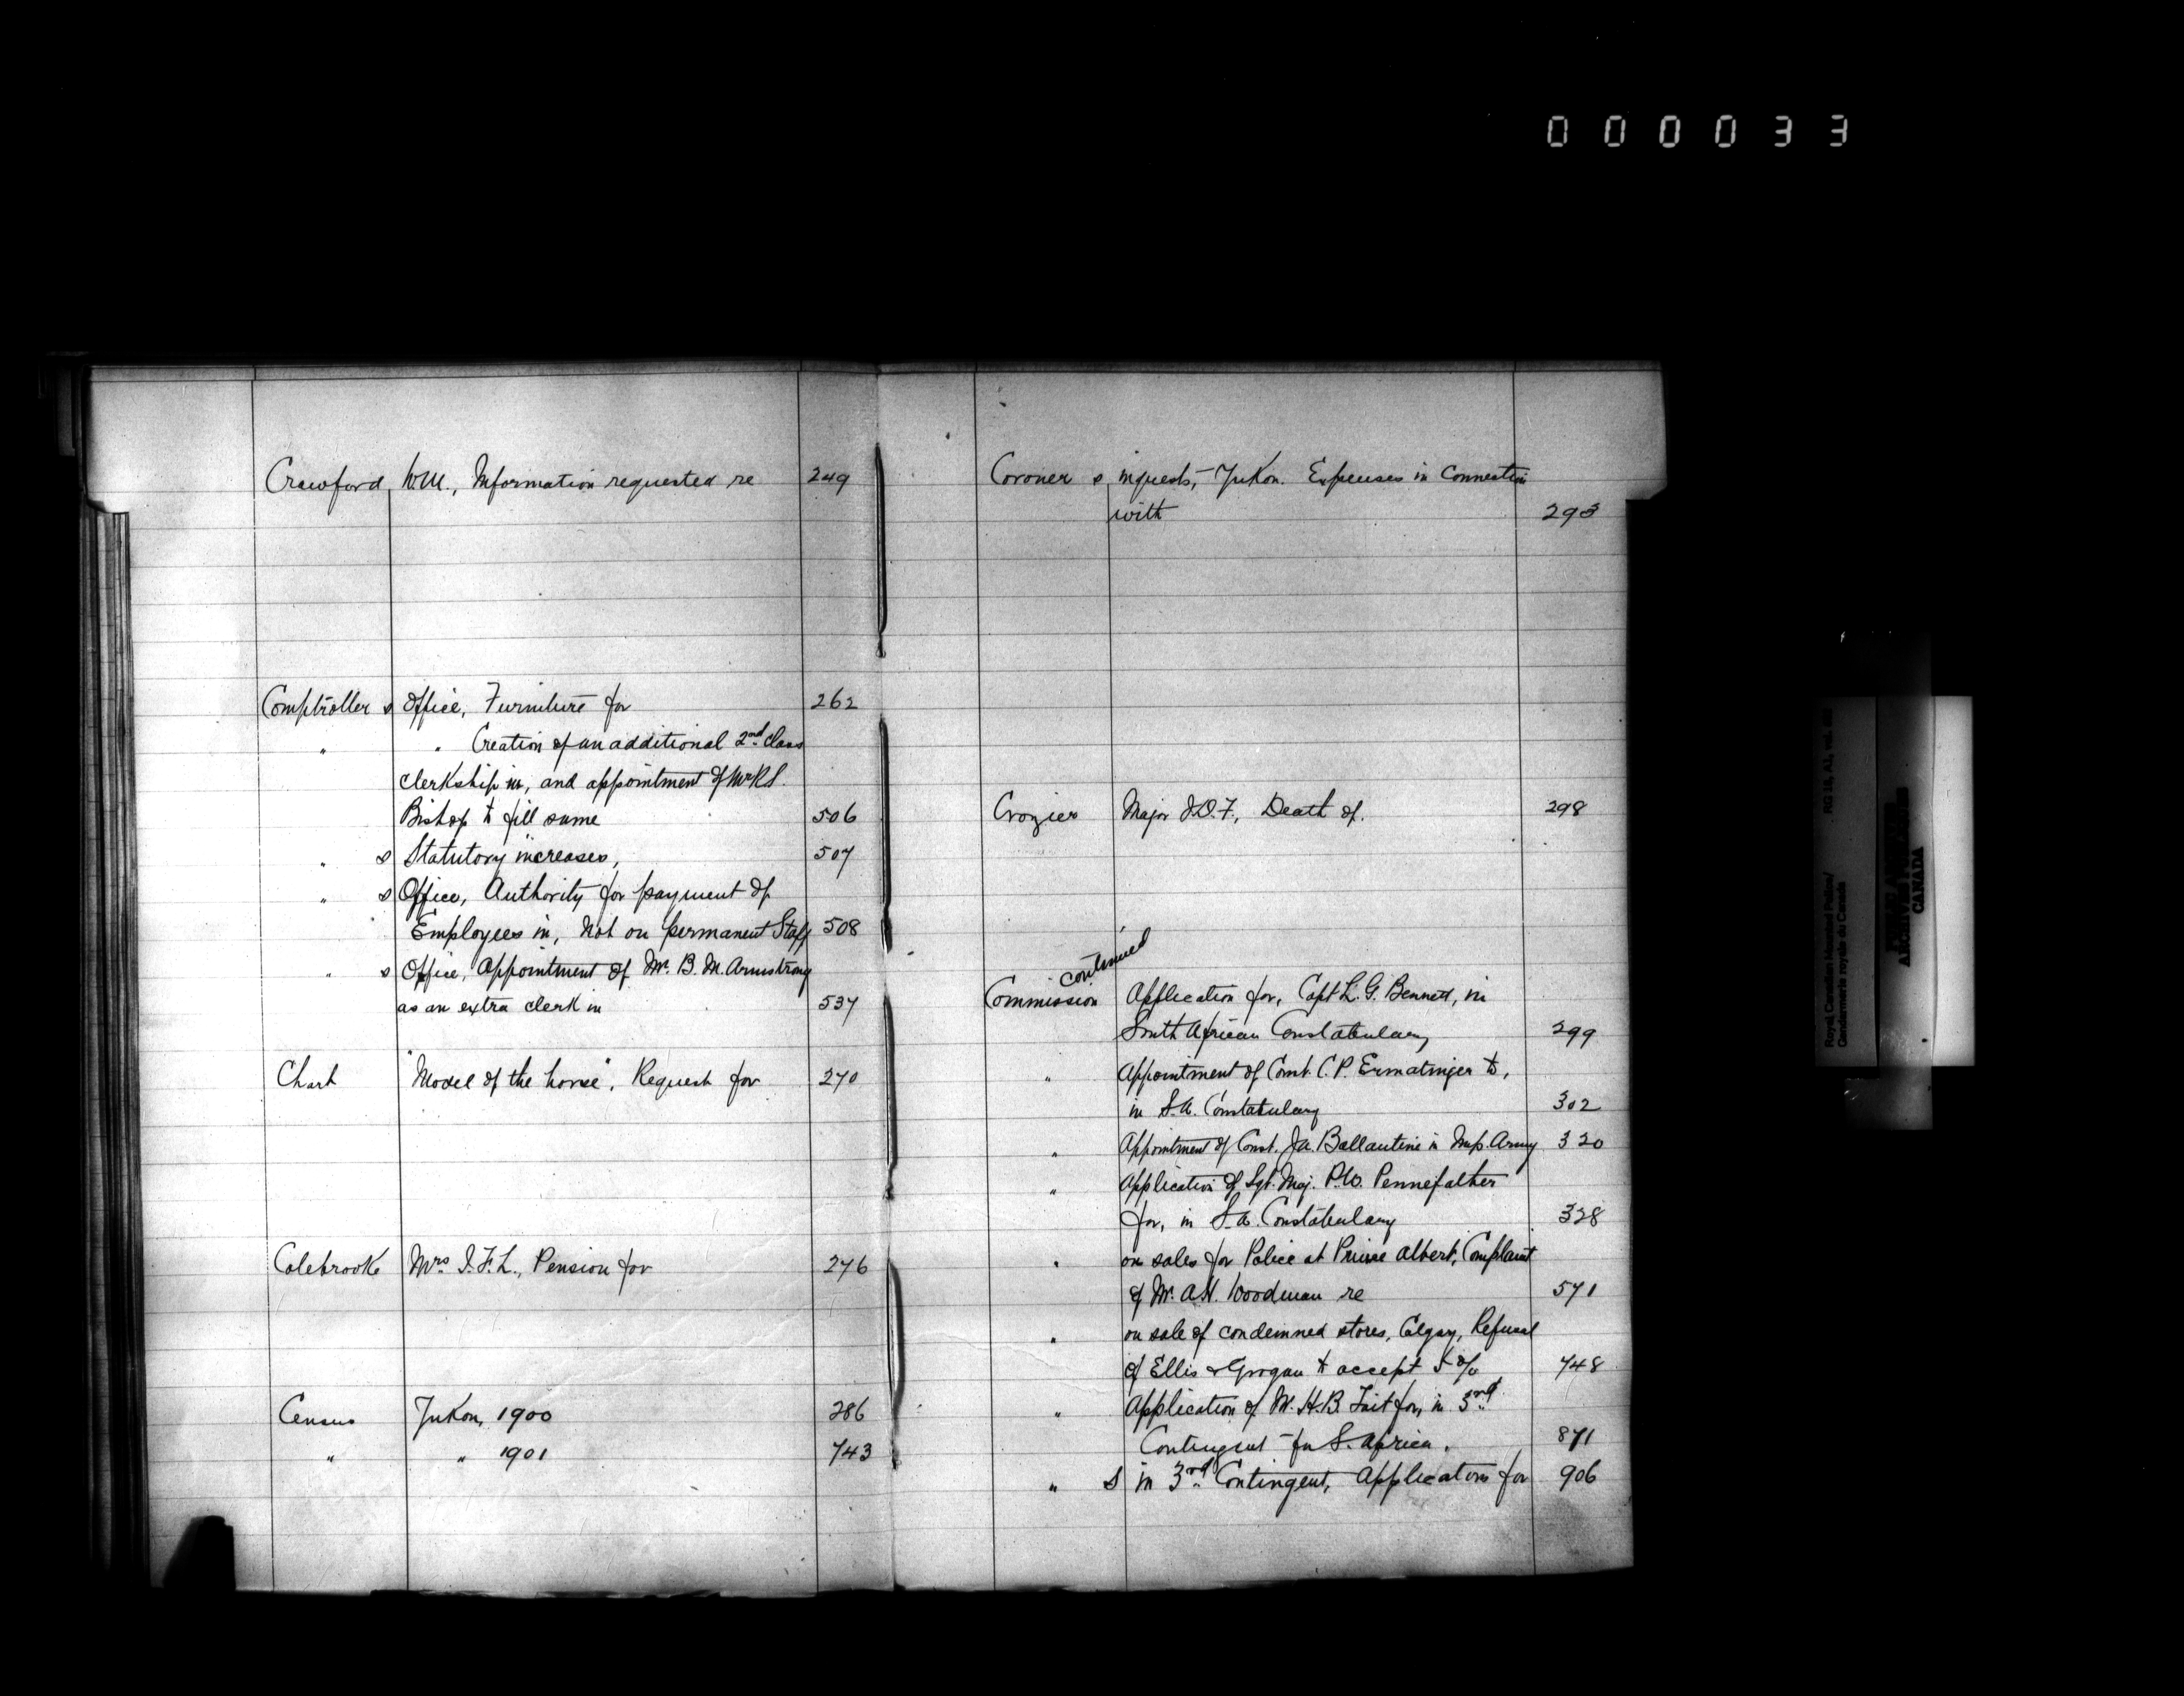 000033
Crawford, W.M., Information requested re 249
Comptroller s Office, Furniture for 262
" " Creation of an additional 2nd Class
clerkship in, and appointment of Mr R.S.
Bishop to fill same 506
" s Statutory increases, 507
" s Office, Authority for payment of
Employees in, Not on permanent Staff 508
" s Office, Appointment of Mr. B. M. Armstrong
as an extra clerk in 537
Chart "Model of the horse", Request for 270
Colebrooke Mrs J.F.L., Pension for 276
Census Yukon, 1900 286
" " 1901 743
Coroner s inquests, Yukon. Expenses in Connection
with 293
Crozier Major J.O.F., Death of. 298
continued
Commission Application for, Capt L. G. Bennett, in
South African Constabulary 299
" Appointment of Const. C. P. Ermatinger to,
in S.A. Constabulary 302
" Appointment of Const. J.A. Ballantine in Imp. Army 320
" Application of Sgt. Maj. P.W. Pennefather
for, in S.A. Constabulary 328
" on sales for Police at Prince Albert, Complaint
of Mr. A.H. Woodman re 571
" on sale of condemned stores, Calgary, Refusal
of Ellis & Grogan to accept 5 % 748
" Application of M. H.B. Tait for, in 3rd
Contingent for S. Africa. 871
" s in 3rd Contingent, Applications for 906
Royal Canadian Mounted Police/
Gendarmerie royale du Canada
RG 18, A1, vol.
CANADA